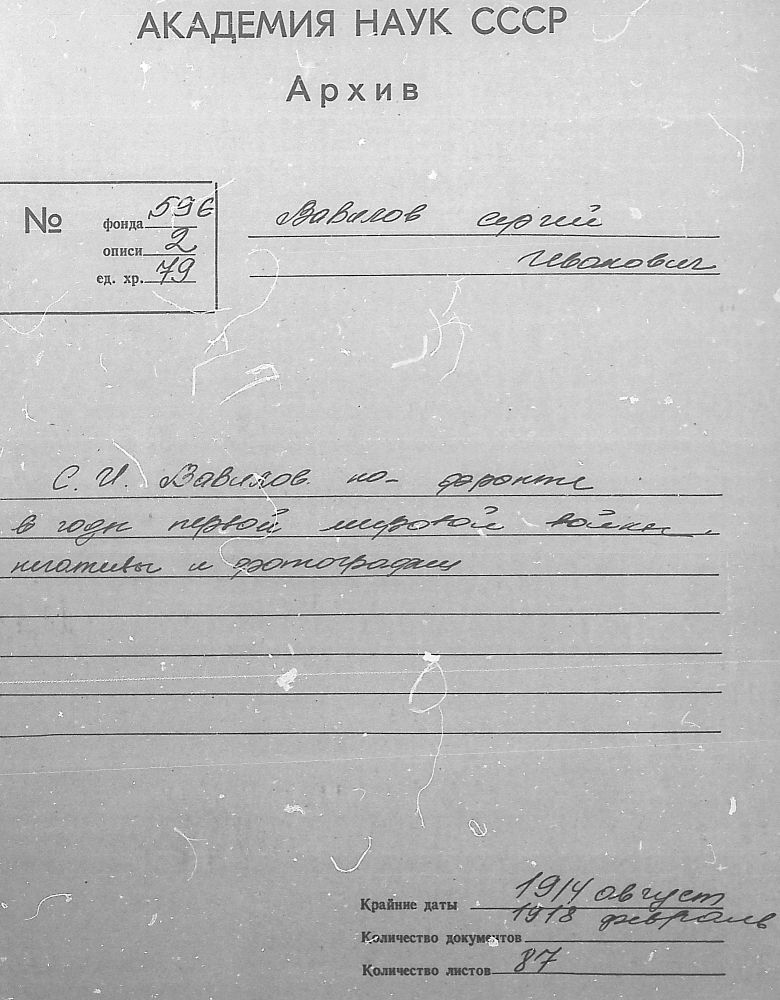 АКАДЕМИЯ НАУК СССР
Архив
№
фонда 596
описи 2
ед. хр. 79
Вавилов Сергей
Иванович
С. И. Вавилов на фронте
в годы первой мировой войны.
негативы и фотографии
Крайние даты 1914 август
1918 февраль
Количество документов
Количество листов 87